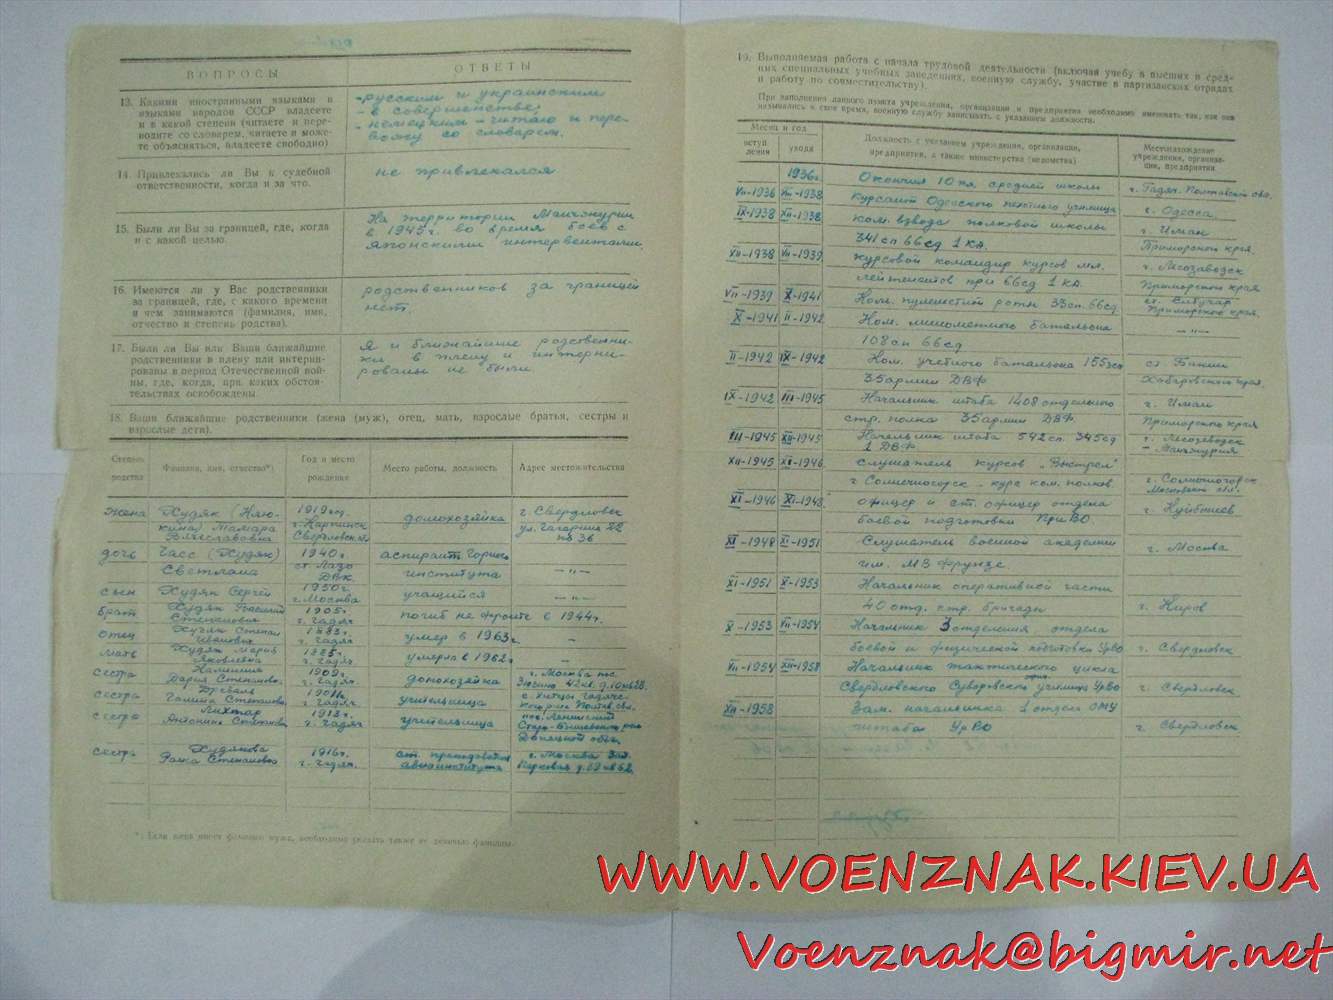 ВОПРОСЫ
ОТВЕТЫ
13. Какими иностранными языками и
языками народов СССР владеете
и в какой степени (читаете и пере-
водите со словарем, читаете и може-
те объясняться, владеете свободно)
- русским и украинским
- в совершенстве.
- немецким - читаю и пере-
вожу со словарем.
14. Привлекались ли Вы к судебной
ответственности, когда и за что.
не привлекался
15. Были ли Вы за границей, где, когда
и с какой целью.
На территории Манчжурии
в 1945г. во время боев с
японскими интервентами.
16. Имеются ли у Вас родственники
за границей, где, с какого времени
и чем занимаются (фамилия, имя,
отчество и степень родства).
родственников за границей
нет.
17. Были ли Вы или Ваши ближайшие
родственники в плену или интерни-
рованы в период Отечественной вой-
ны, где, когда, при каких обстоя-
тельствах освобождены.
Я и ближайшие родственни-
ки в плену и интерни-
рованы не были.
18. Ваши ближайшие родственники (жена (муж), отец, мать, взрослые братья, сестры и
взрослые дети).
Степень
родства
Фамилия, имя, отчество*)
Год и место
рождения
Место работы, должность
Адрес местожительства
жена Худяк
Тамара
Вячеславовна
1919г.
г. Карпинск
Свердловской
домохозяйка
г. Свердловск
ул. Гагарина 22
кв 36
дочь Гасс (Худяк)
Светлана
1940г
ст. Лазо
ДВК.
аспирант Горного
института
- „ -
сын Худяк Сергей
1950г.
г. Москва
учащийся
- „ -
брат Худяк Василий
Степанович
1905г.
г. Гадяч
погиб на фронте в 1944г.
отец Худяк Степан
Иванович
1883г.
г. Гадяч
умер в 1963г.
-
мать Худяк Мария
Яковлевна
1885г.
г. Гадяч
умерла в 1962г
-
сестра
Дария Степановна
1909г.
г. Гадяч.
домохозяйка
г. Москва
сестра
Галина Степановна
г. Гадяч
учительница
сестра Лихтар
Антонина Степановна
1913г.
г. Гадяч
учительница
пос. Ленинский
Донецкой обл.
сестра Худякова
Раиса Степановна
1916г.
г. Гадяч.
ст. преподаватель
авиаинститута
г. Москва
Парковая
*) Если жена носит фамилию мужа, необходимо указать также ее девичью фамилию.
19. Выполняемая работа с начала трудовой деятельности (включая учебу в высших и сред-
них специальных учебных заведениях, военную службу, участие в партизанских отрядах
и работу по совместительству).
При заполнении данного пункта учреждения, организации и предприятия необходимо именовать так, как они
назывались в свое время, военную службу записывать с указанием должности.
Месяц и год
вступ-
ления
ухода
Должность с указанием учреждения, организации,
предприятия, а также министерства (ведомства)
Местонахождение
учреждения, организа-
ции, предприятия
1936г. Окончил 10 кл. средней школы г. Гадяч. Полтавской обл.
VII-1936 VIII-1938 Курсант Одесского пехотного училища г. Одесса
IX-1938 XII-1938 ком. взвода полковой школы г. Иман
341 сп 66 сд 1 КА. Приморский края
XII-1938 VII-1939 курсовой командир курсов мл. г. Лесозаводск
лейтенантов при 66 сд 1 КА. Приморского края
VII-1939 X-1941 Ком. пулеметной роты 33 сп. 66 сд ст. Сибучар
Приморского края.
X-1941 II-1942 Ком. минометного батальона - „ -
108 сп 66 сд
II-1942 IX-1942 Ком. учебного батальона 155 ст. Бикин
35 армии ДВФ Хабаровского края.
IX-1942 III-1945 Начальник штаба 1408 отдельного г. Иман
стр. полка 35 армии ДВФ. Приморского края
III-1945 XII-1945 Начальник штаба 542 сп. 345 сд г. Лесозаводск
1 ДВФ - Манчжурия
XII-1945 XI-1946 слушатель курсов „Выстрел" г. Солнечногорск
г Солнечногорск - курс ком. полков Московской обл.
XI-1946 XI-1948 офицер и ст. офицер отдела г. Куйбышев
боевой подготовки ПриВО
XI-1948 XI-1951 Слушатель военной академии г. Москва
им. М В Фрунзе.
XI-1951 X-1953 Начальник оперативной части
40 отд. стр. бригады г. Киров
X-1953 VII-1954 Начальник 3 отделения отдела
боевой и физической подготовки УрВО г. Свердловск
VII-1954 XII-1958 Начальник тактического цикла
Свердловского Суворовского училища УрВО г. Свердловск
XII-1958 Зам. начальника 1 отдел ОМУ
штаба УрВО г Свердловск
WWW.VOENZNAK.KIEV.UA
Voenznak@bigmir.net